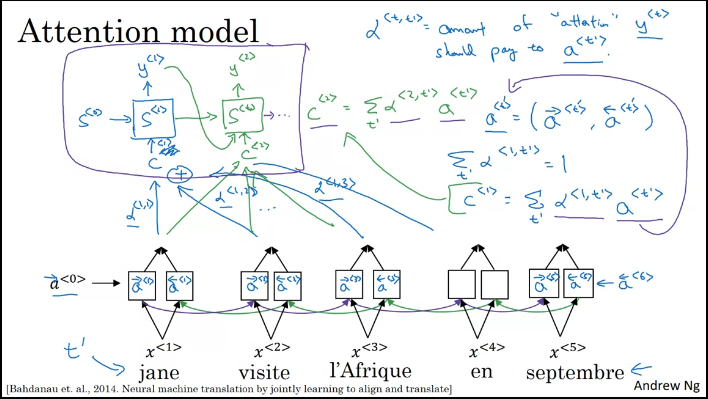 Attention model
α<t,t'> = amount of "attention" y<t>
should pay to a<t'>.
y<1> y<2>
S<0> S<1> S<2> ...
c<1> c<2>
+
α<1,1> α<1,2> ... α<1,3>
c<2> = Σt' α<2,t'> a<t'>
a<t'> = (→a<t'>, ←a<t'>)
Σt' α<1,t'> = 1
c<1> = Σt' α<1,t'> a<t'>
→a<0> →a<1> ←a<1> →a<2> ←a<2> →a<3> ←a<3> →a<5> ←a<5> ←a<6>
t' x<1> x<2> x<3> x<4> x<5>
jane visite l'Afrique en septembre
[Bahdanau et. al., 2014. Neural machine translation by jointly learning to align and translate]
Andrew Ng